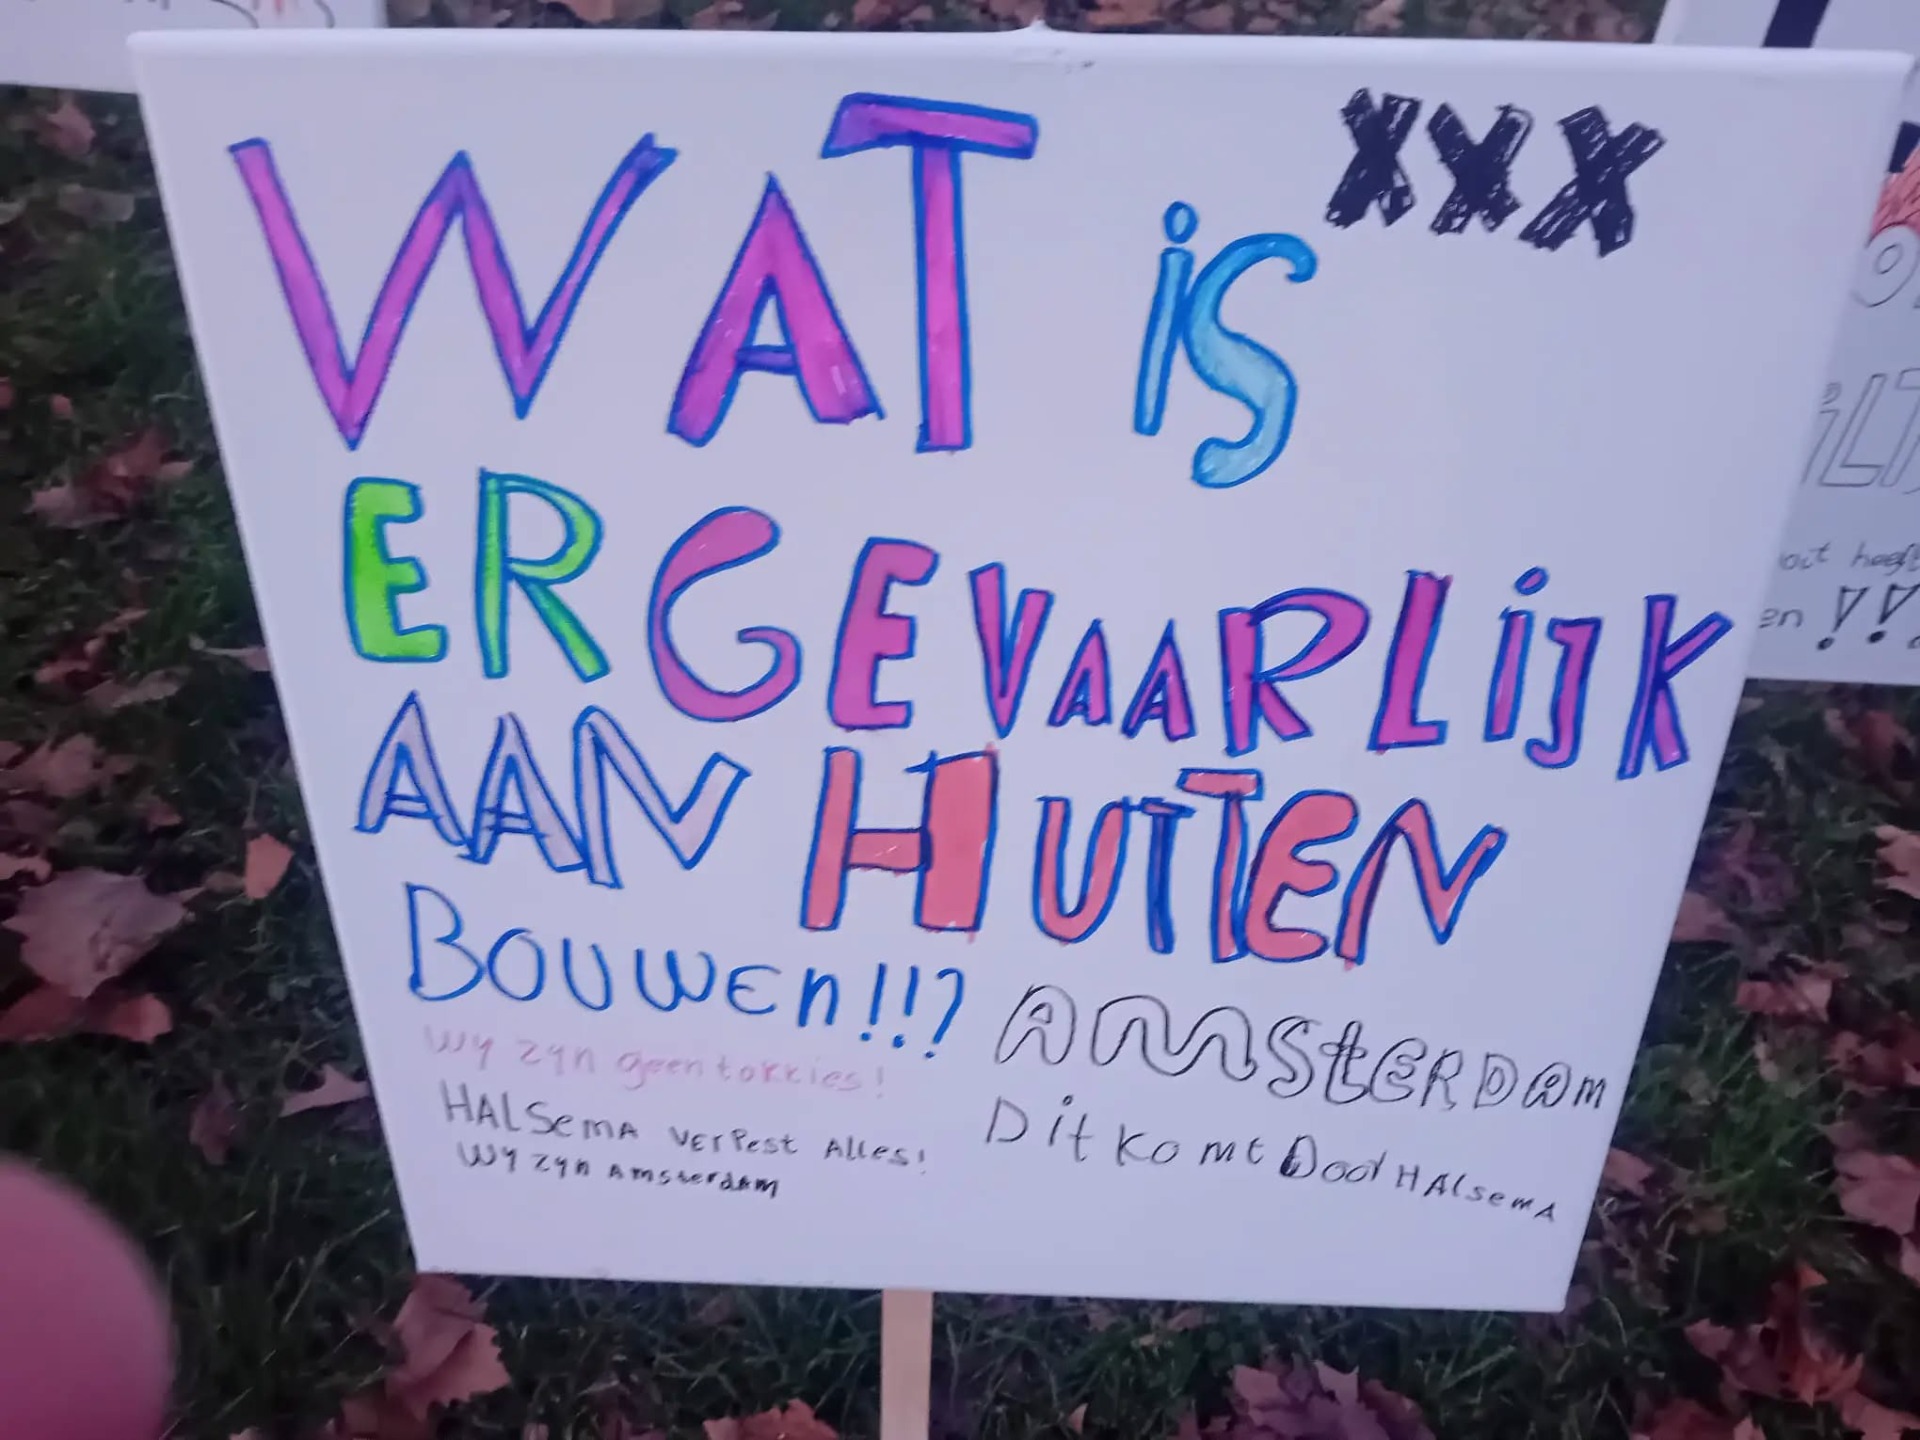 XXX
WAT is
ER GEVAARLijK
AAN HUTTEN
BOUWEn!!?
Wy zyn geen tokkies!
HALSemA verPest Alles!
Wy zyn Amsterdam
AMSterDam
Dit komt Door HAlsemA
en !!!